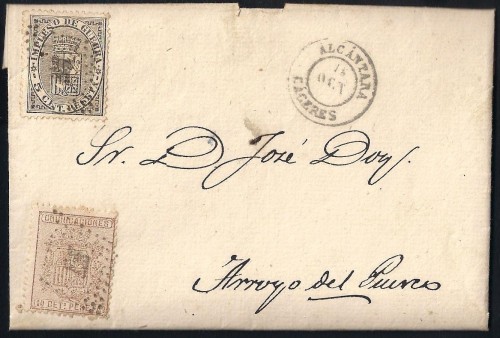 IMPUESO DE GUERRA
5 CENT. PESETA
ALCÁNTARA
14
OCT
CÁCERES
Sr. D José Doy.
COMUNICACIONES
10 CET⁵ PE
Arroyo del Puerco